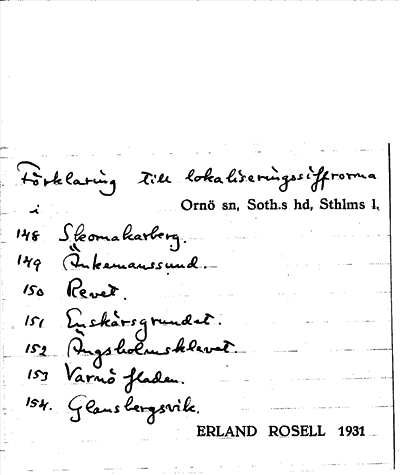 Förklaring till lokaliseringssiffrorna
i Ornö sn, Soth.s hd, Sthlms l.
148 Skomakarberg.
149 Änkemanssund.
150 Revet.
151 Enskärsgrundet.
152 Ängsholmsklavet.
153 Varnö fladen.
154. Glansbergsvik.
ERLAND ROSELL 1931